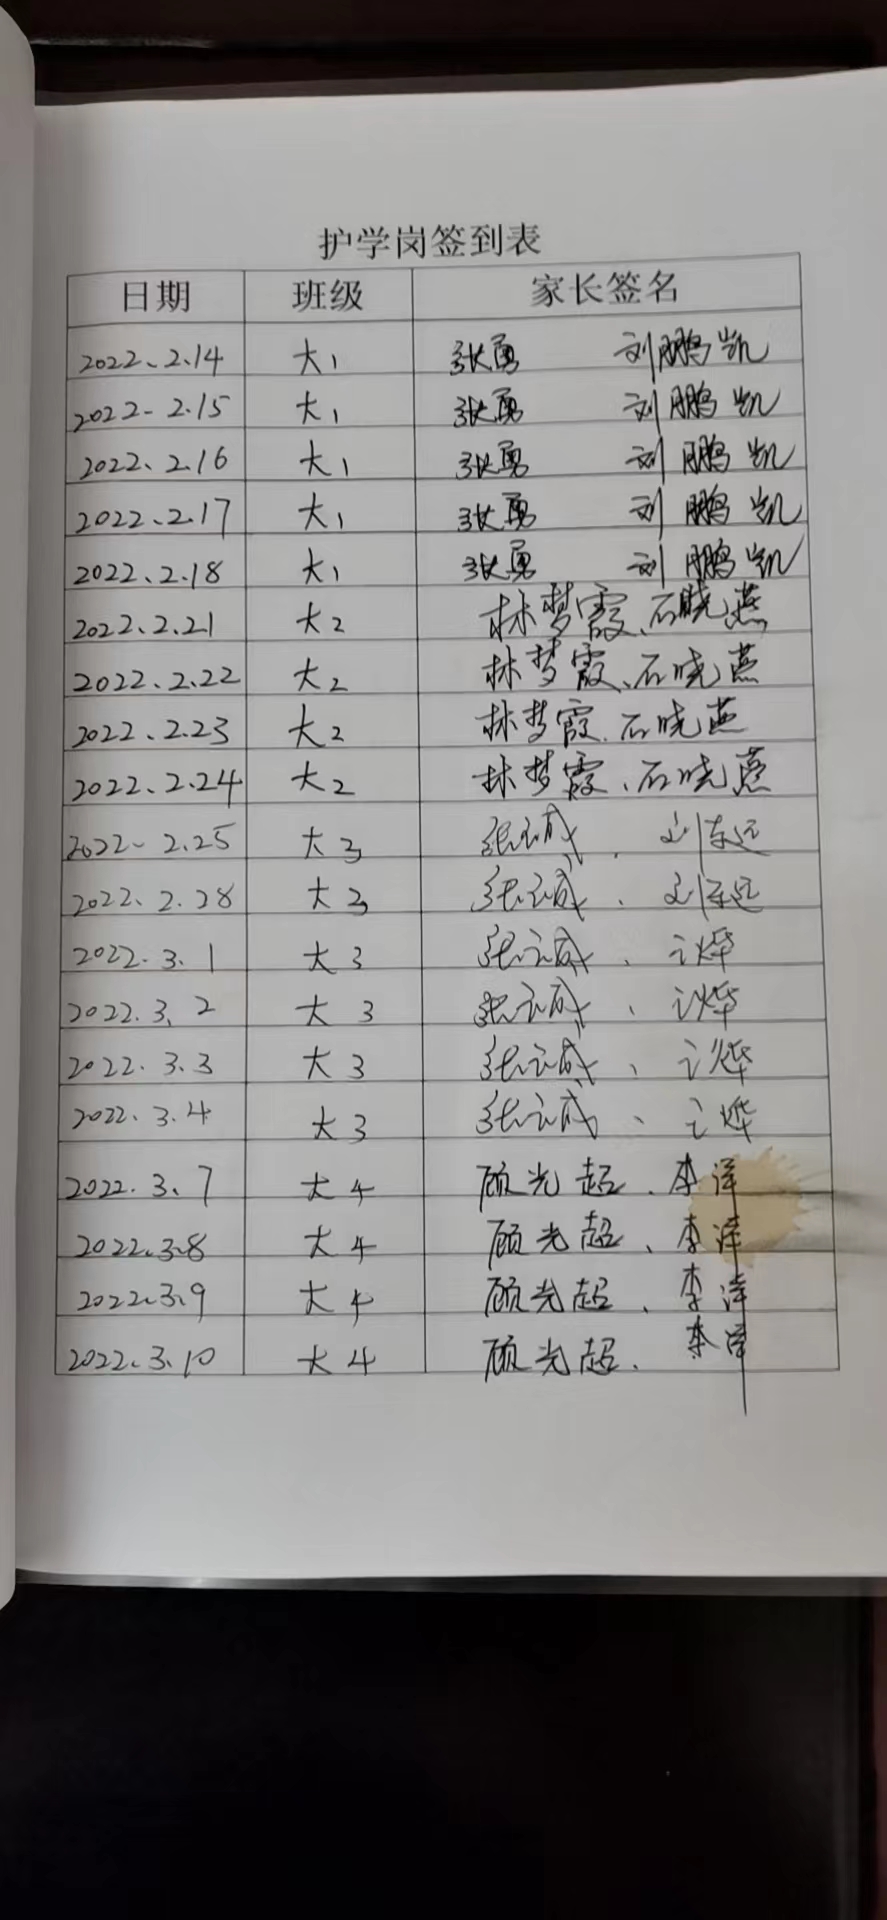 护学岗签到表
日期 班级 家长签名
2022.2.14 大1 张勇 刘鹏凯
2022.2.15 大1 张勇 刘鹏凯
2022.2.16 大1 张勇 刘鹏凯
2022.2.17 大1 张勇 刘鹏凯
2022.2.18 大1 张勇 刘鹏凯
2022.2.21 大2 林梦霞、石晓燕
2022.2.22 大2 林梦霞、石晓燕
2022.2.23 大2 林梦霞、石晓燕
2022.2.24 大2 林梦霞、石晓燕
2022.2.25 大3 刘东远
2022.2.28 大3 刘东远
2022.3.1 大3
2022.3.2 大3
2022.3.3 大3
2022.3.4 大3
2022.3.7 大4 顾光超、李洋
2022.3.8 大4 顾光超、李洋
2022.3.9 大4 顾光超、李洋
2022.3.10 大4 顾光超、李洋